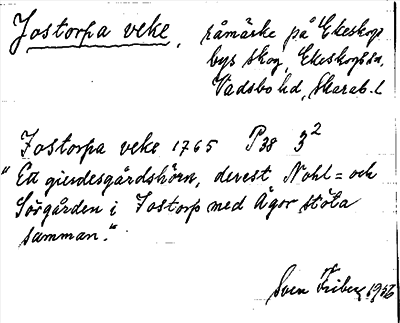 Jostorpa veke, råmärke på Ekeskogs
bys skog, Ekeskogs sn,
Vadsbo hd, Skarab. l
Jostorpa veke 1765 P38 3²
"Ett gierdesgårdshörn, derest Nohl= och
Sörgården i Jostorp med Ägor stöta
samman."
Sven Friberg 1956